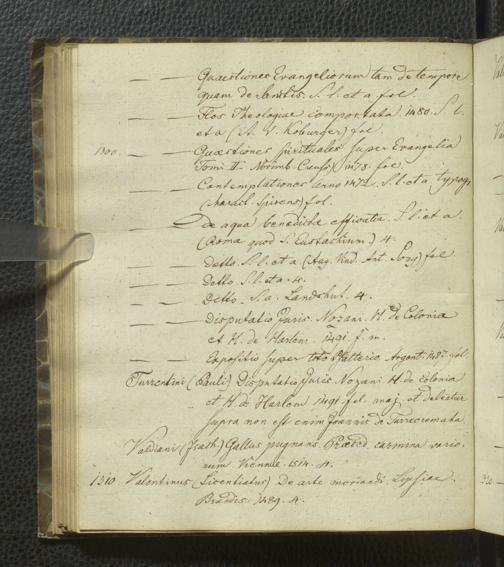 — — Quaestiones Evangeliorum tam de tempore
quam de Sanctis. S. l. et a fol.
— — Flos Theologiae comportata 1480. S. l.
et a (A. V. Koburger) fol.
1300. — Quaestiones spirituales super Evangelia
Tomi II. Norimb. 1478. fol.
— — Contemplationes anno 1472. S. l. et a typogr.
fol.
— — De aqua benedicta efficatia. S. l. et a
(Roma apud S. Eustachium) 4.
— — detto S. l. et a (Aug. Vind. Ant. Sorg) fol
— — detto S. l. et a. 4.
— — detto S. a. Landshut. 4.
— — Disputatio Juris. Nozani. H. de Colonia
et H. de Harlem. 1491. f. m.
— — Expositio super toto Psalterio Argent. 1487. fol.
Turrentini (Pauli) Disputatio Juris Nozani H. de Colonia
et H. de Harlem 1491 fol. maj. et debetur
supra non est enim Joannis de Turrecremata.
Valdiani (Joach) Gallus pugnans. Praeced. carmina vario-
rum Viennae. 1514. 4.
1310 Valentinus (Licentiatus) De arte moriendi Lipsiae.
Brandis. 1489. 4.